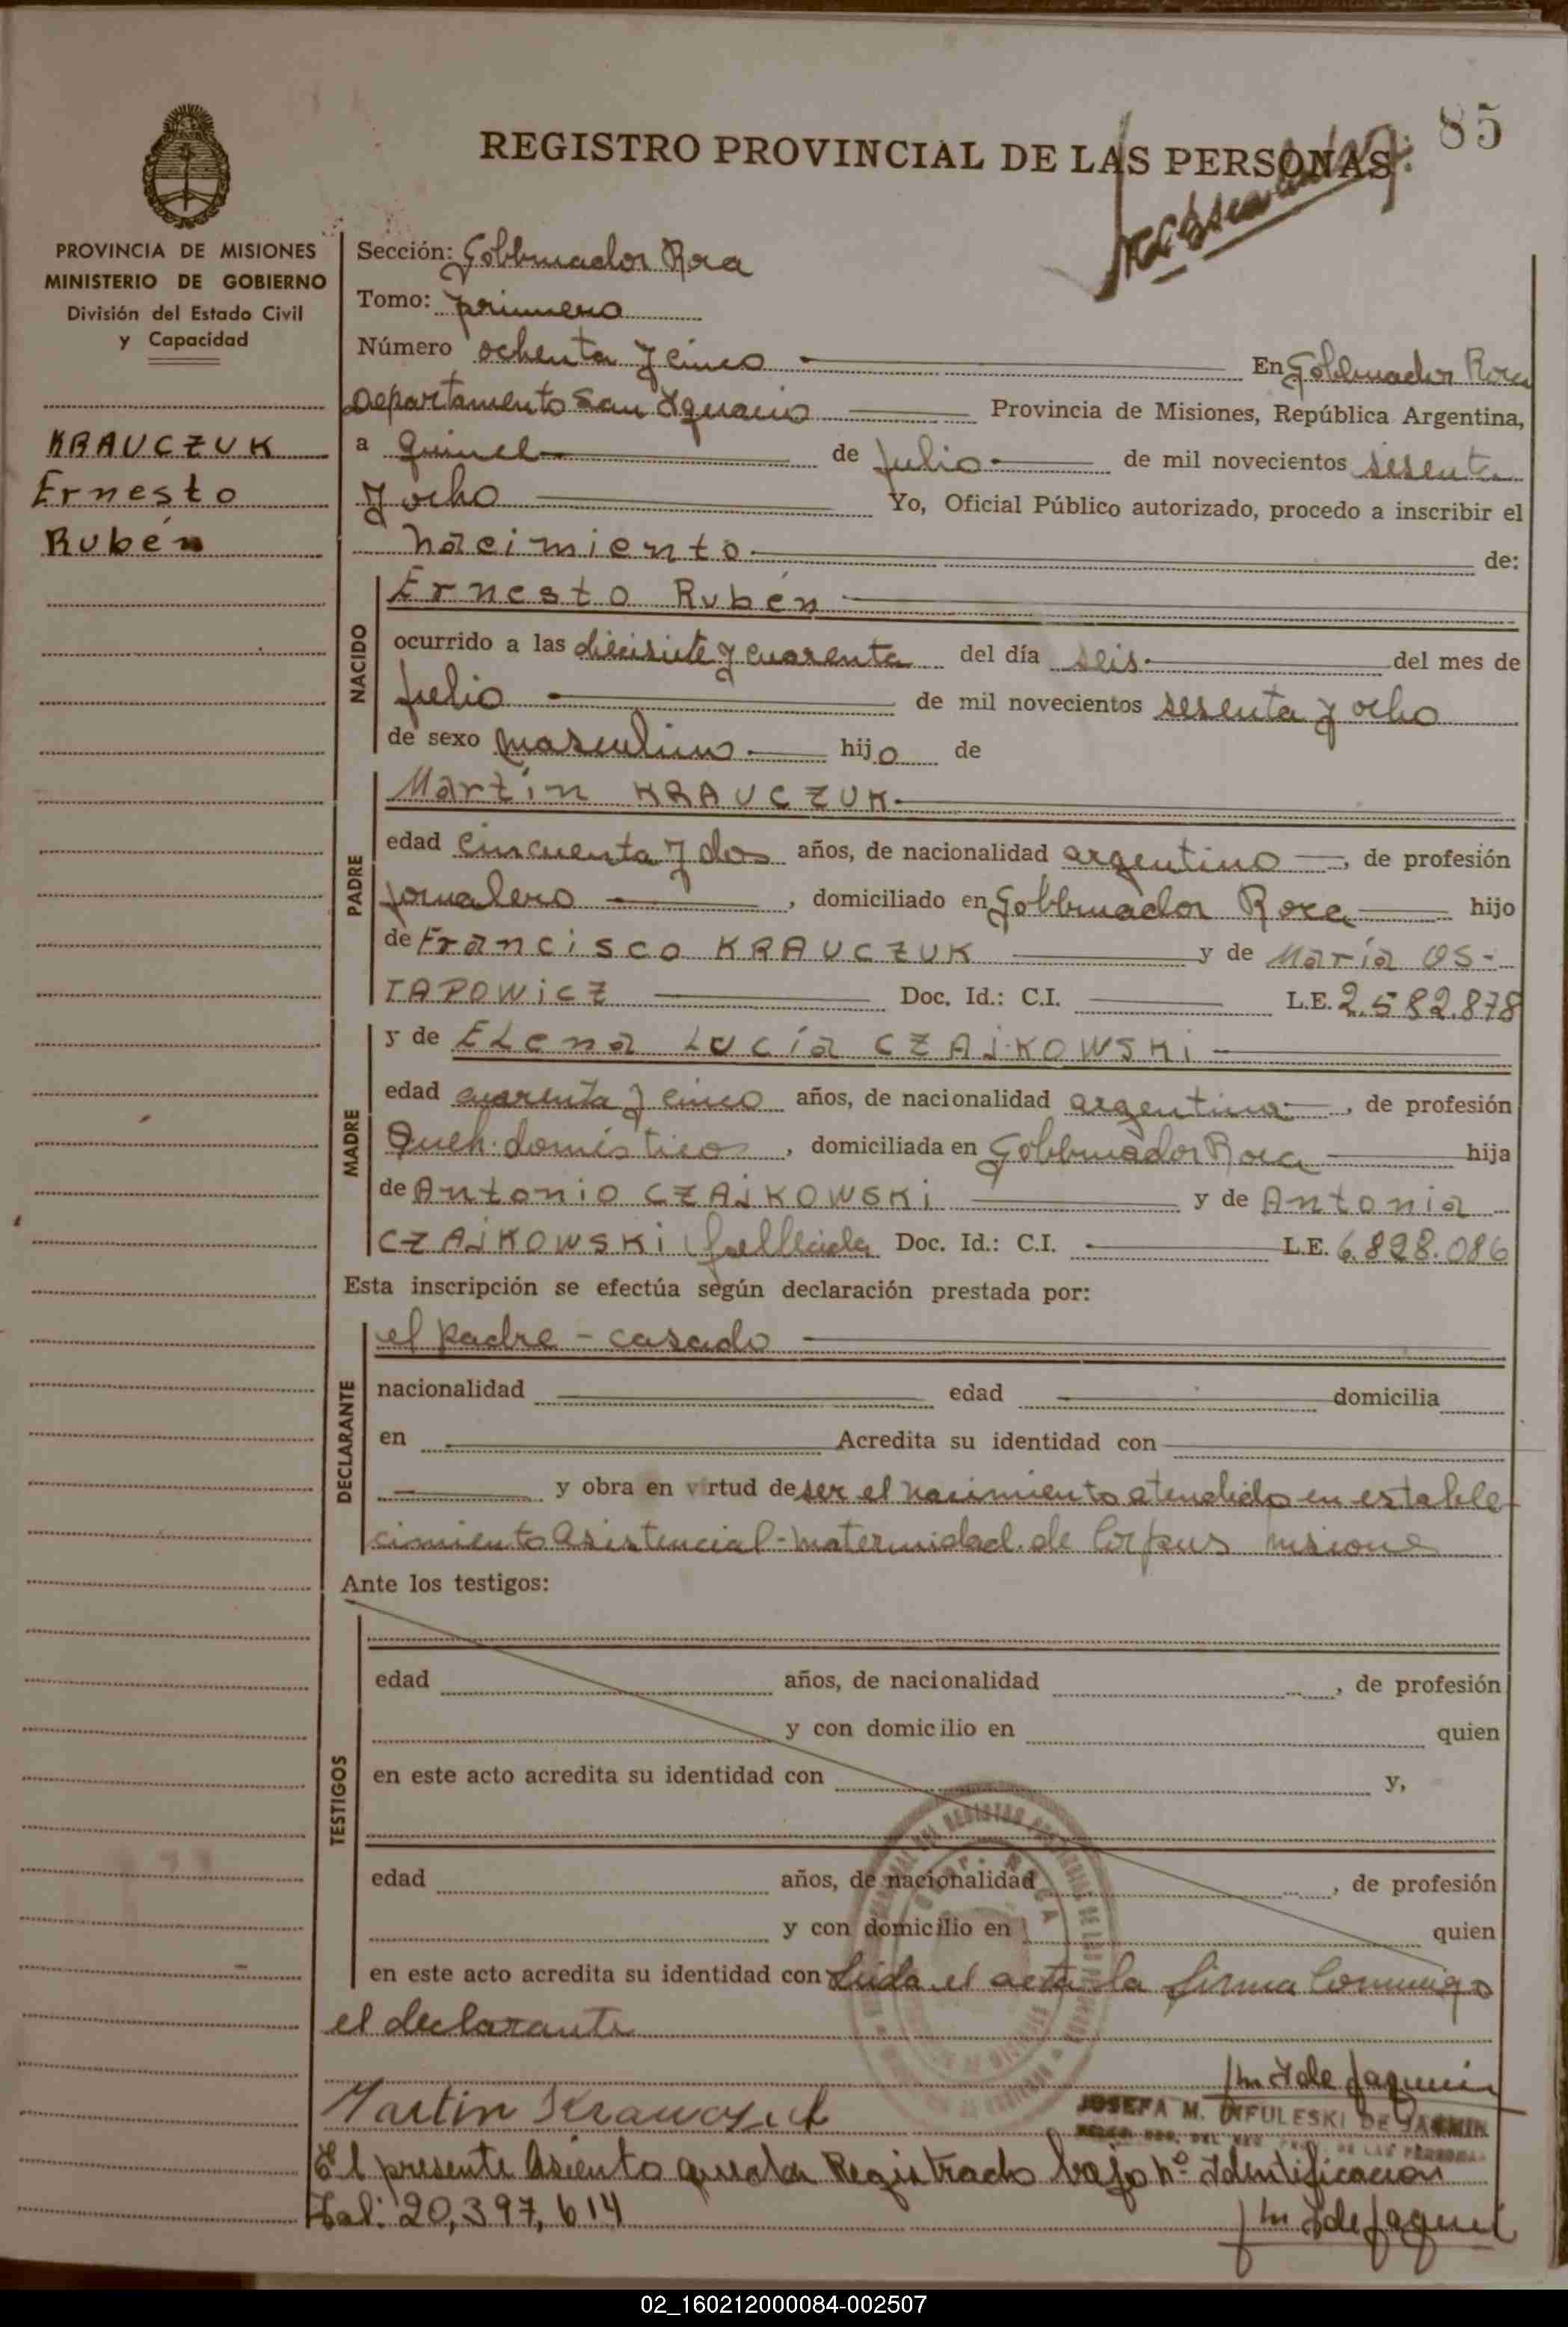 85
REGISTRO PROVINCIAL DE LAS PERSONAS
PROVINCIA DE MISIONES
MINISTERIO DE GOBIERNO
División del Estado Civil
y Capacidad
KRAUCZUK
Ernesto
Rubén
Sección: Gobernador Roca
Tomo: primero
Número ochenta y cinco En Gobernador Roca
Departamento San Ignacio Provincia de Misiones, República Argentina,
a quince de Julio de mil novecientos sesenta
y ocho Yo, Oficial Público autorizado, procedo a inscribir el
nacimiento de:
NACIDO
Ernesto Rubén
ocurrido a las diecisiete y cuarenta del día seis del mes de
Julio de mil novecientos sesenta y ocho
de sexo masculino hijo de
PADRE
Martín KRAUCZUK
edad cincuenta y dos años, de nacionalidad argentino, de profesión
jornalero, domiciliado en Gobernador Roca hijo
de Francisco KRAUCZUK y de María OS-
TAPOWICZ Doc. Id.: C.I. L.E. 2.582.878
MADRE
y de ELena Lucía CZAJKOWSKi
edad cuarenta y cinco años, de nacionalidad argentina, de profesión
Queh. domésticos, domiciliada en Gobernador Roca hija
de Antonio CZAJKOWSKi y de Antonia
CZAJKOWSKi fallecida Doc. Id.: C.I. L.E. 6.828.086
Esta inscripción se efectúa según declaración prestada por:
DECLARANTE
el padre - casado
nacionalidad edad domicilia
en Acredita su identidad con
y obra en virtud de ser el nacimiento atendido en estable-
cimiento asistencial - maternidad de Corpus misiones
Ante los testigos:
TESTIGOS
edad años, de nacionalidad , de profesión
y con domicilio en quien
en este acto acredita su identidad con y,
edad años, de nacionalidad , de profesión
y con domicilio en quien
en este acto acredita su identidad con Leida el acta la firma conmigo
el declarante
Martin Krawczuk
JOSEFA M. DE JAQMIN
El presente Asiento queda Registrado bajo Nº Identificacion
Nal: 20,397,614
02_160212000084-002507